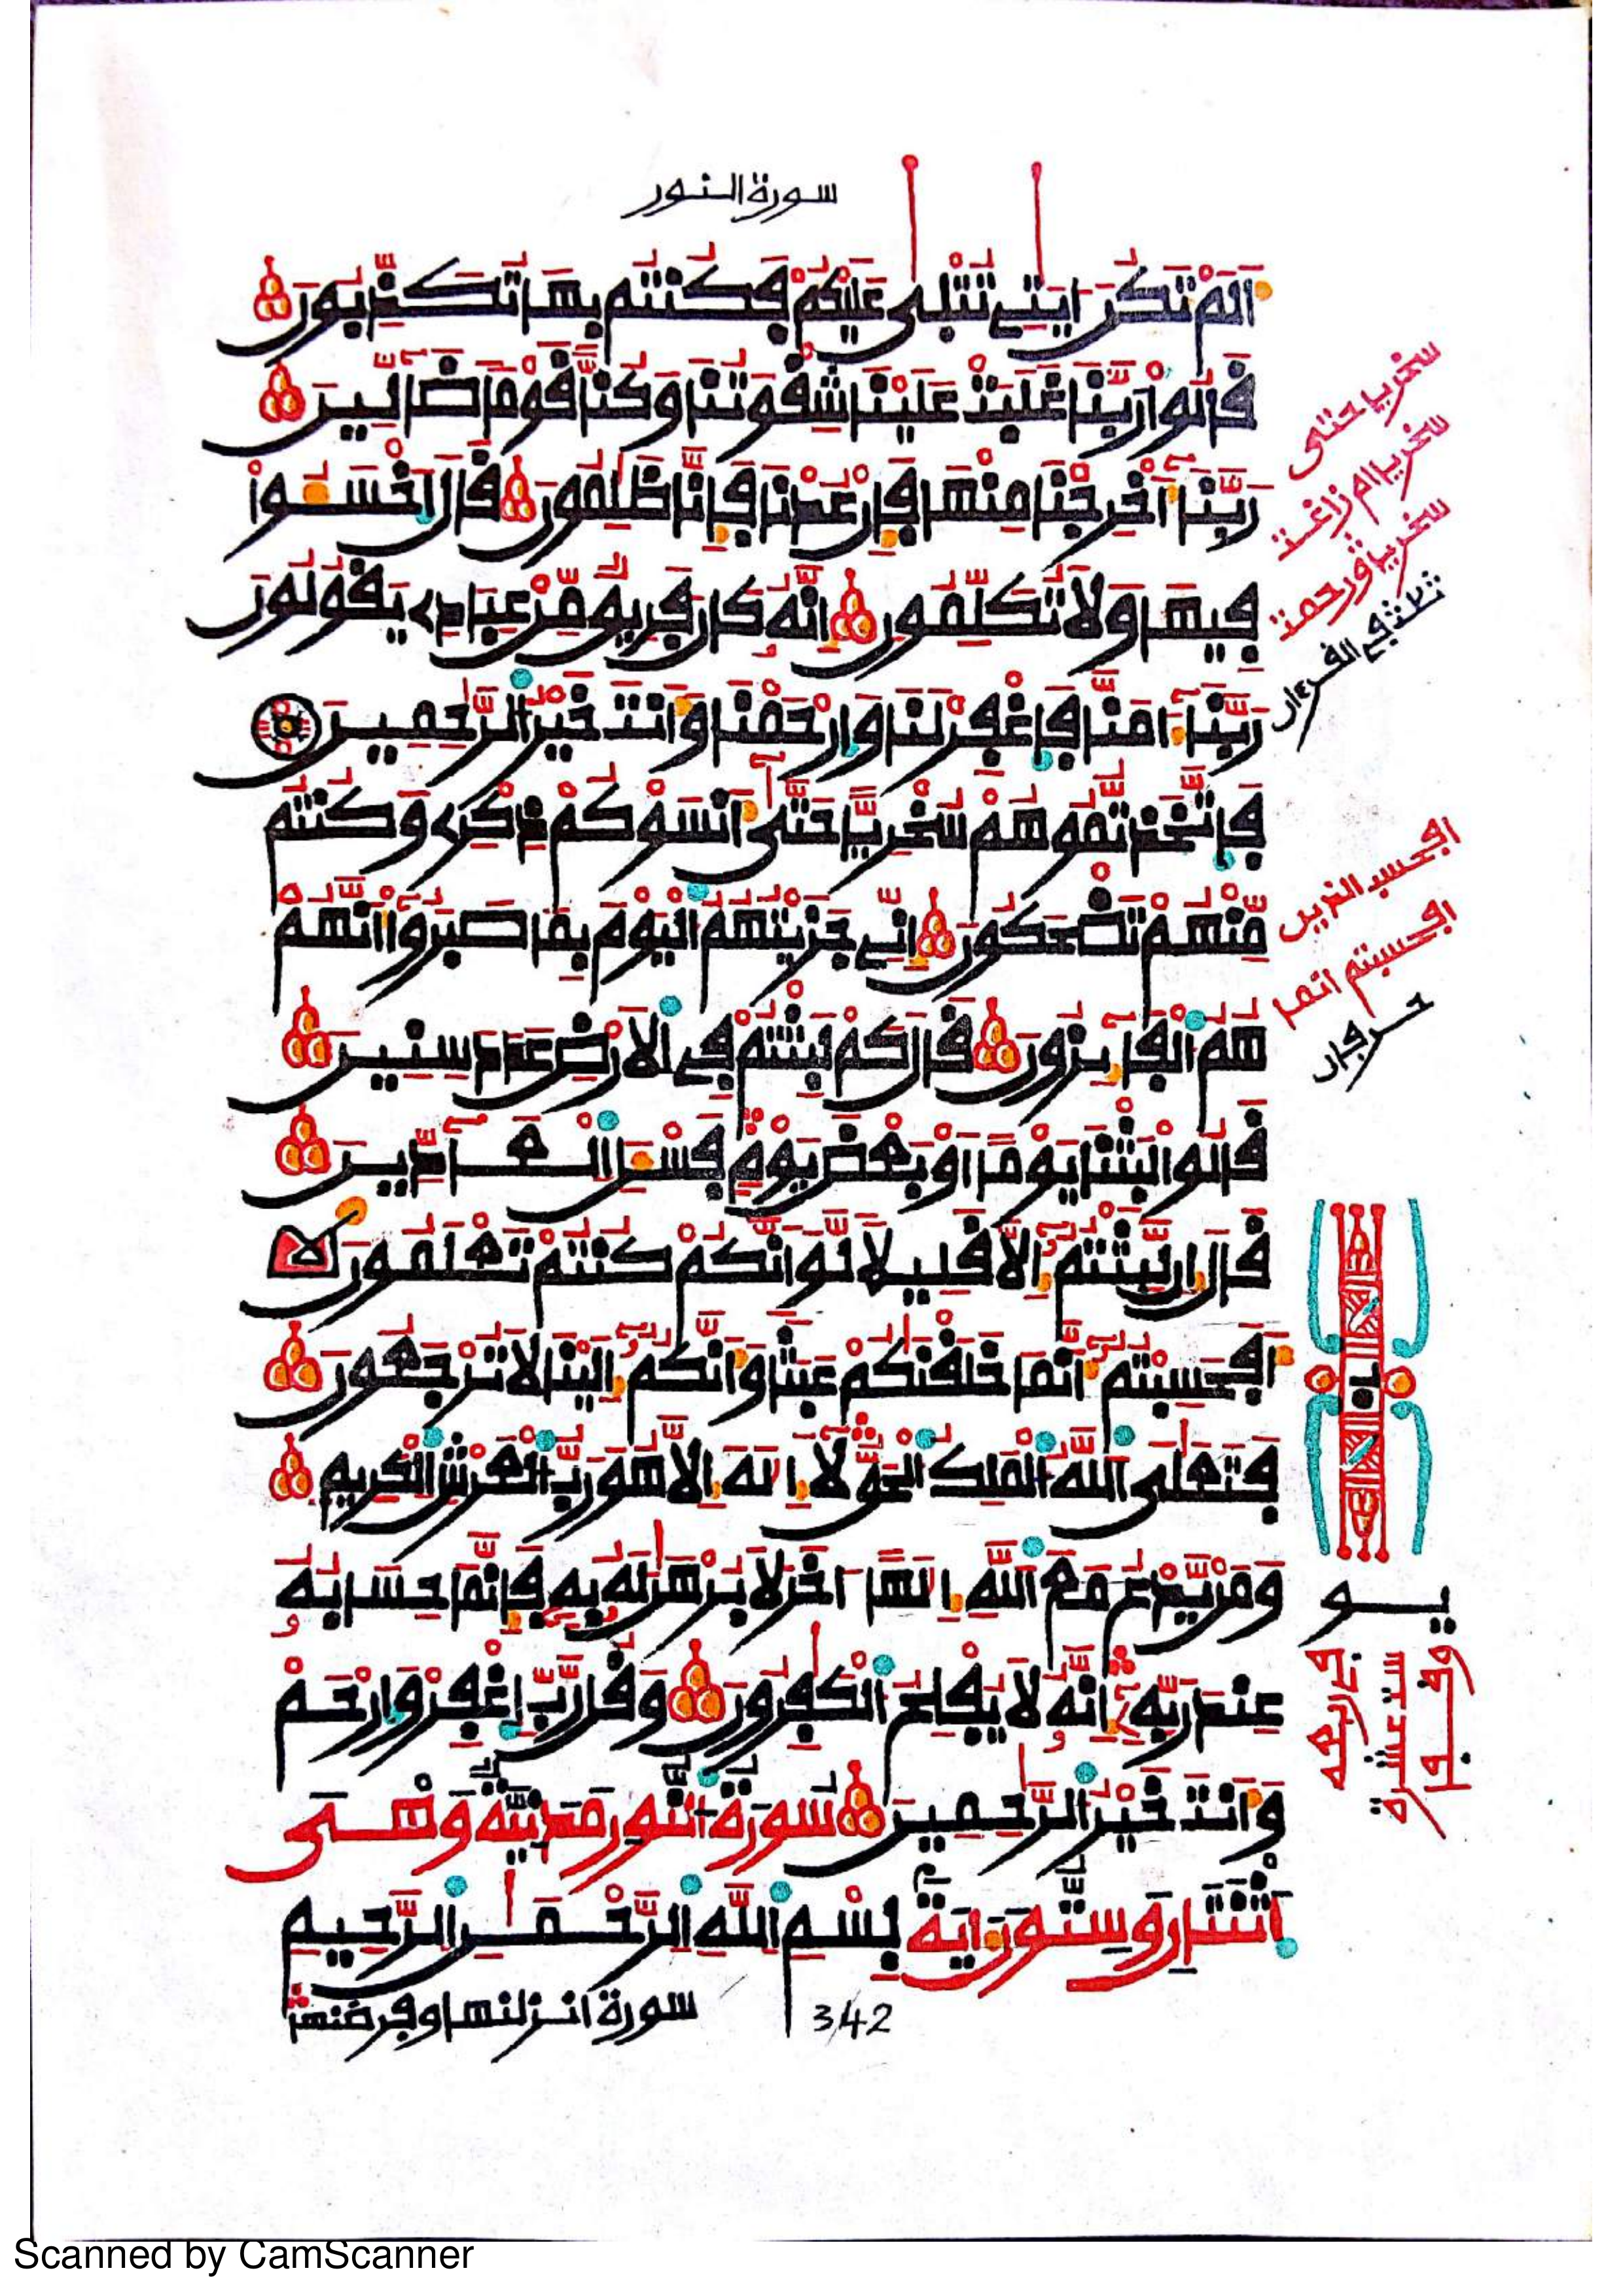 سورة النور
اَلَمْ تَكُنَ ايٰتِے تُتْلٰى عَلَيْكُمْ فَكُنتُم بِهَا تُكَذِّبُونَ
قَالُواْ رَبَّنَا غَلَبَتْ عَلَيْنَا شِقْوَتُنَا وَكُنَّا قَوْماً ضَآلِّينَ
رَبَّنَآ أَخْرِجْنَا مِنْهَا فَإِنْ عُدْنَا فَإِنَّا ظَٰلِمُونَ قَالَ اَخْسَـُٔواْ
فِيهَا وَلَا تُكَلِّمُونِ إِنَّهُۥ كَانَ فَرِيقٌ مِّنْ عِبَادِے يَقُولُونَ
رَبَّنَآ ءَامَنَّا فَاغْفِرْ لَنَا وَارْحَمْنَا وَأَنتَ خَيْرُ الرَّٰحِمِينَ
فَاتَّخَذتُّمُوهُمْ سُخْرِيّاً حَتَّىٰٓ أَنسَوْكُمْ ذِكْرِے وَكُنتُم
مِّنْهُمْ تَضْحَكُونَ إِنِّے جَزَيْتُهُمُ الْيَوْمَ بِمَا صَبَرُوٓاْ أَنَّهُمْ
هُمُ الْفَآئِزُونَ قَالَ كَمْ لَبِثْتُمْ فِے الْأَرْضِ عَدَدَ سِنِينَ
قَالُواْ لَبِثْنَا يَوْماً أَوْ بَعْضَ يَوْمٍ فَسْـَٔلِ الْعَآدِّينَ
قَالَ إِن لَّبِثْتُمُۥٓ إِلَّا قَلِيلاً لَّوَ اَنَّكُمْ كُنتُمْ تَعْلَمُونَ
أَفَحَسِبْتُمُۥٓ أَنَّمَا خَلَقْنَٰكُمْ عَبَثاً وَأَنَّكُمُۥٓ إِلَيْنَا لَا تُرْجَعُونَ
فَتَعَٰلَى اللَّهُ الْمَلِكُ الْحَقُّ لَآ إِلَٰهَ إِلَّا هُوَ رَبُّ الْعَرْشِ الْكَرِيمِ
وَمَنْ يَّدْعُ مَعَ اللَّهِ إِلَٰهاً اٰخَرَ لَا بُرْهَٰنَ لَهُۥ بِهِۦ فَإِنَّمَا حِسَابُهُۥ
عِندَ رَبِّهِۦٓ إِنَّهُۥ لَا يُفْلِحُ الْكَٰفِرُونَ وَقُل رَّبِّ اِغْفِرْ وَارْحَمْ
وَأَنتَ خَيْرُ الرَّٰحِمِينَ سُورَةُ النُّورِ مَدَنِيَّةٌ وَهِىَ
اثْنَتَانِ وَسِتُّونَ اٰيَةً بِسْمِ اللَّهِ الرَّحْمَٰنِ الرَّحِيمِ
سورة انزلنها وفرضنها
342
سخريا حتى
سخريا ام زاغت
سخريا ورحمت
افحسب الذين
افحسبتم انما
حرفان
يو
Scanned by CamScanner